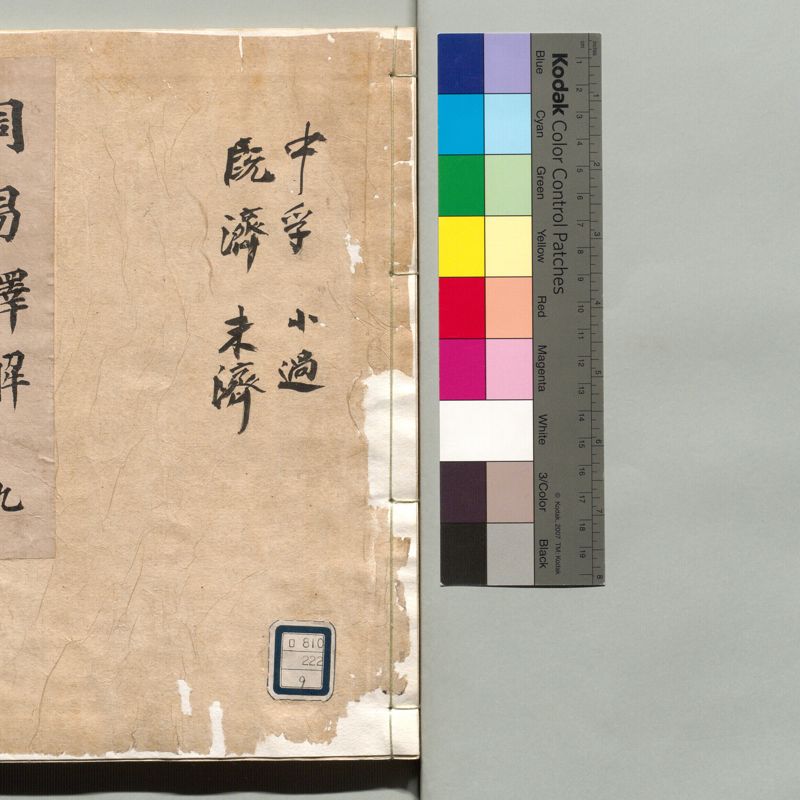 中孚 小過
既濟 未濟
周易釋解 九
ロ 810
222
9
Kodak Color Control Patches
Blue
Cyan
Green
Yellow
Red
Magenta
White
3/Color
Black
© Kodak, 2007 TM: Kodak
cm 1 2 3 4 5 6 7 8 9 10 11 12 13 14 15 16 17 18 19
inches 1 2 3 4 5 6 7 8